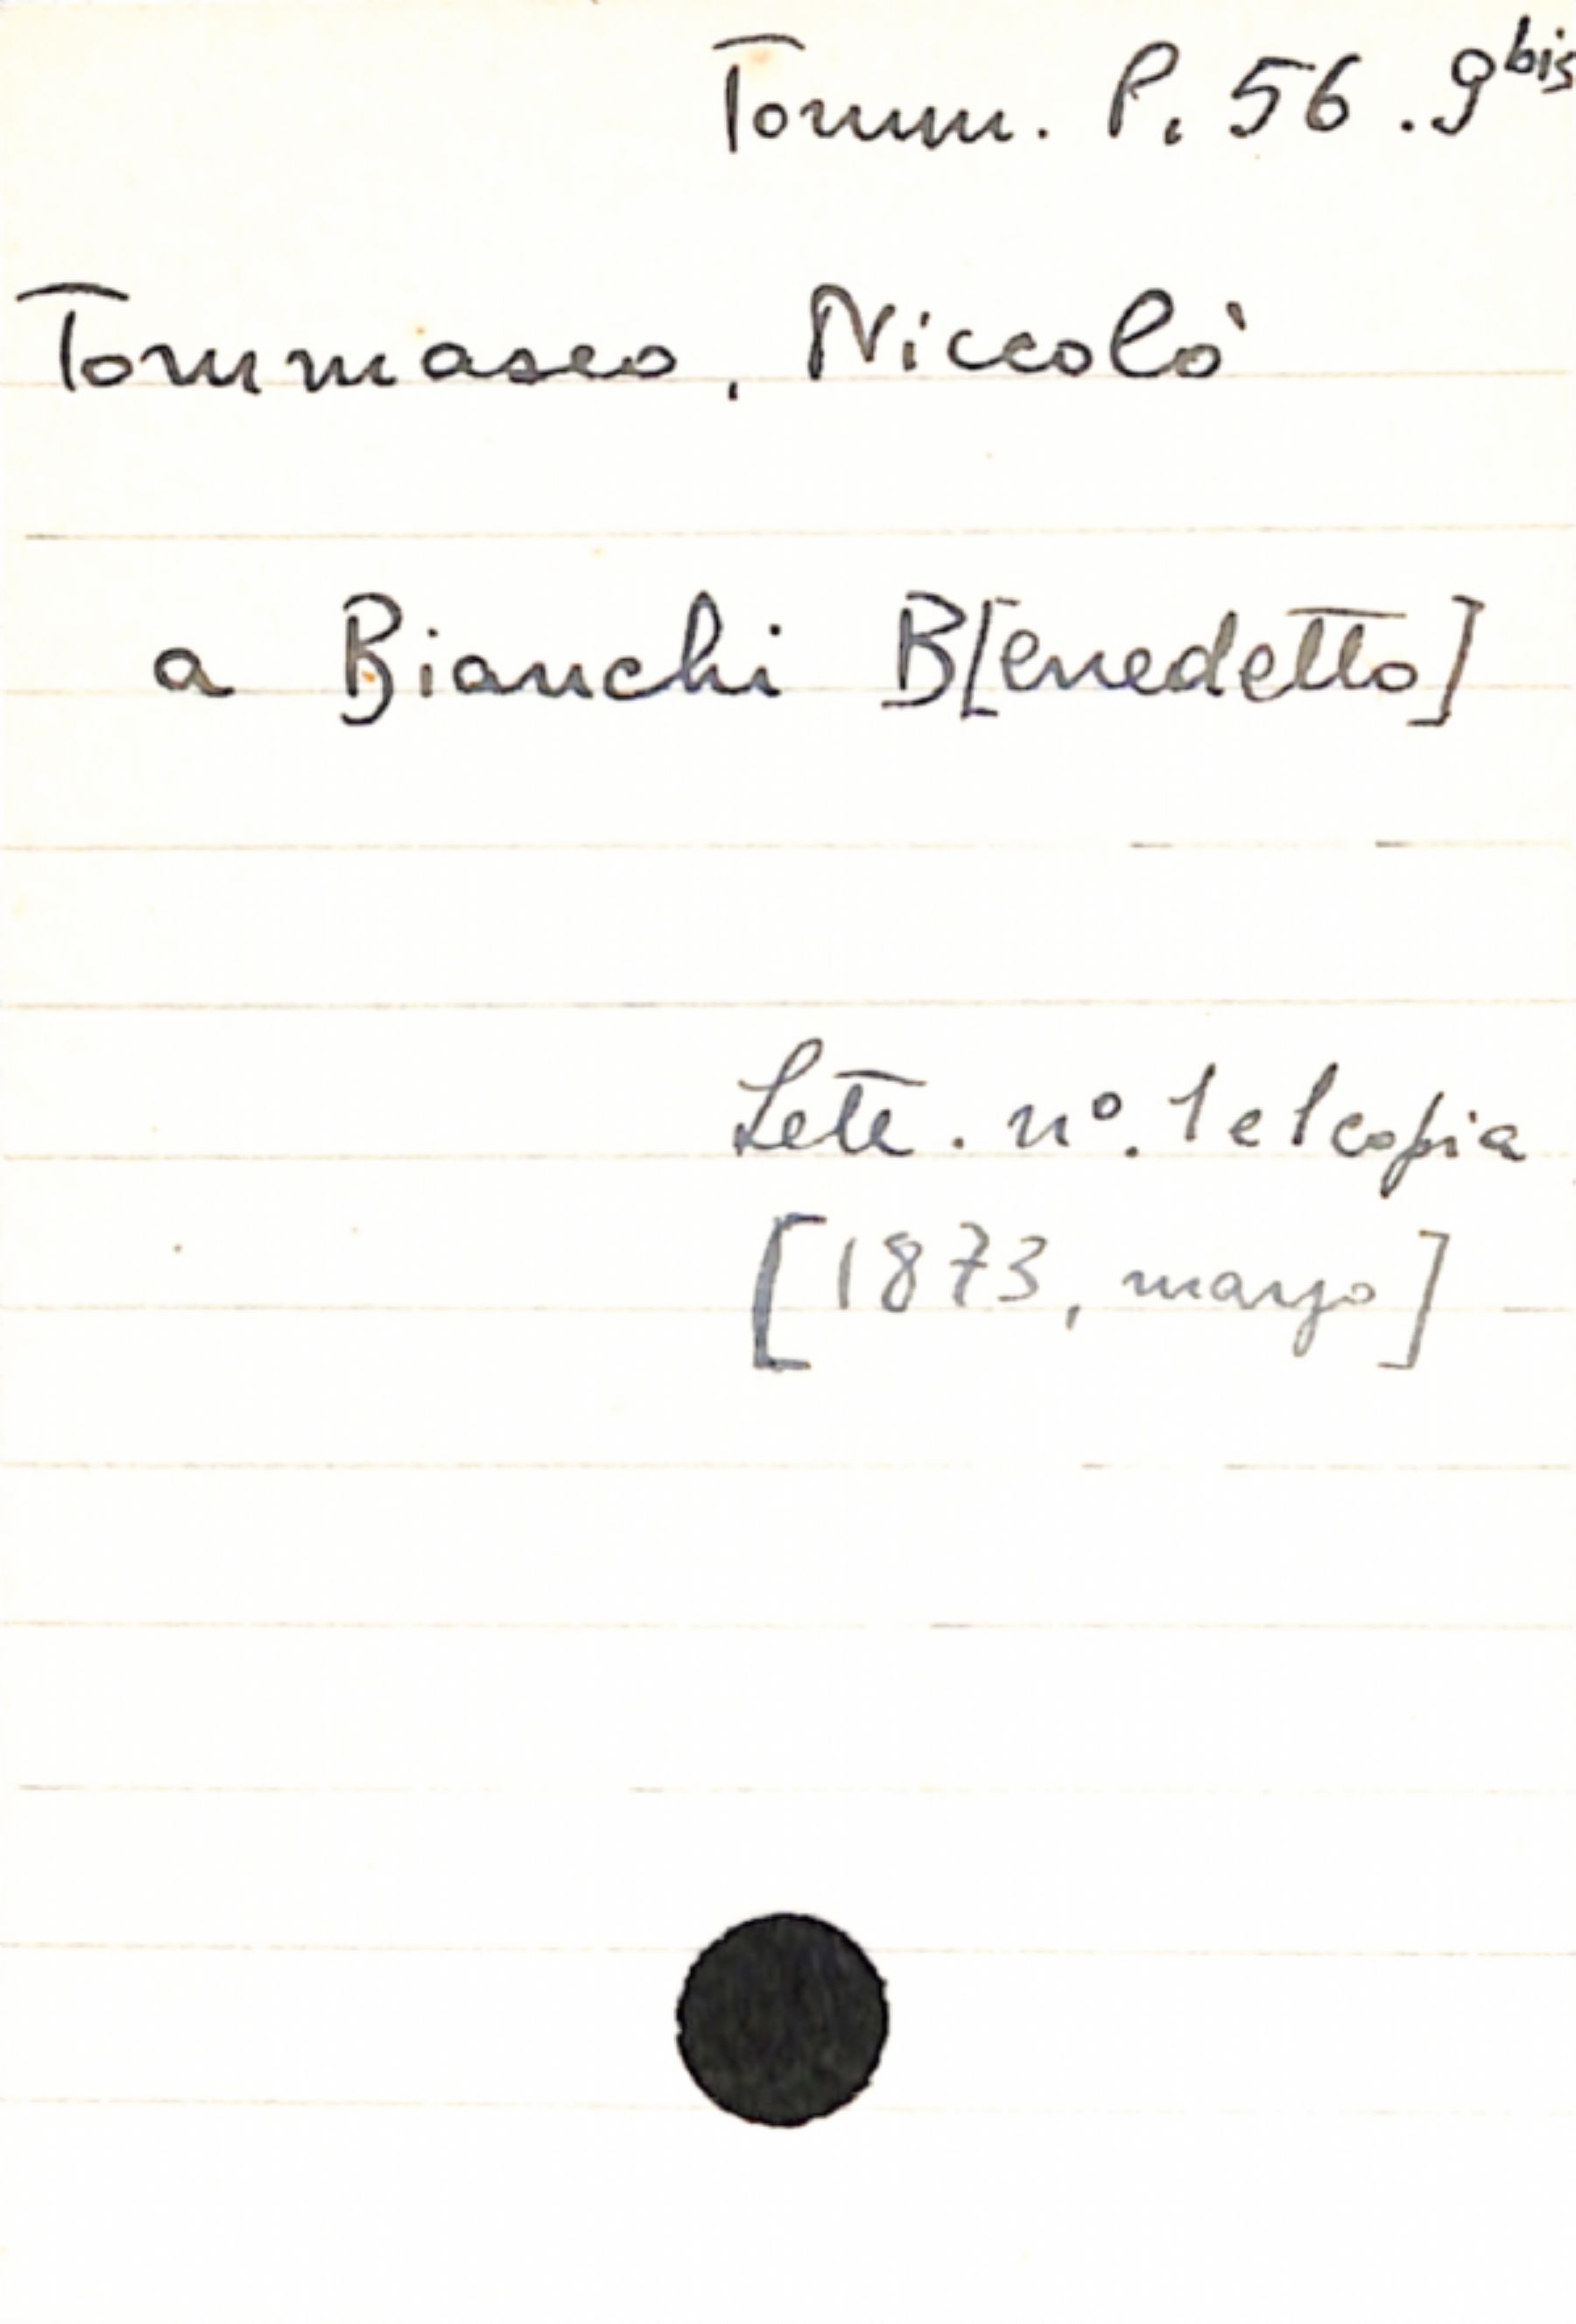 Tomm. P. 56. 9 bis
Tommaseo, Niccolò
a Bianchi B[enedetto]
Lett. nº. 1 e 1 copia
[1873, marzo]